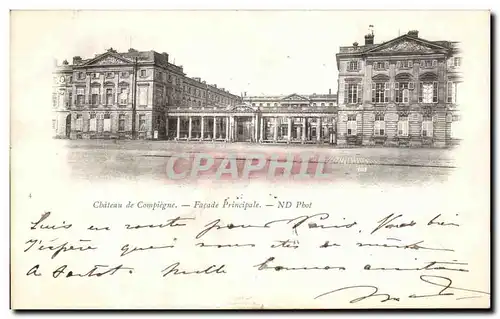 CPHAPHIL
Château de Compiègne. — Façade Principale. — ND Phot
Suis en route pour Paris. Vais bien
J'espère que tu es de même
à bientôt Mille bonnes amitiés